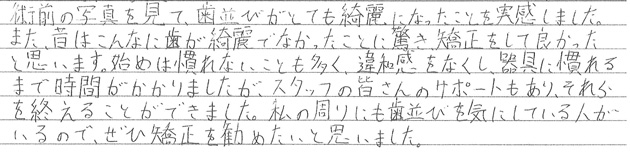 術前の写真を見て、歯並びがとても綺麗になったことを実感しました。
また、昔はこんなに歯が綺麗でなかったことに驚き、矯正をして良かった
と思います。始めは慣れないことも多く、違和感をなくし、器具に慣れる
まで時間がかかりましたが、スタッフの皆さんのサポートもあり、それら
を終えることができました。私の周りにも歯並びを気にしている人が
いるので、ぜひ矯正を勧めたいと思いました。